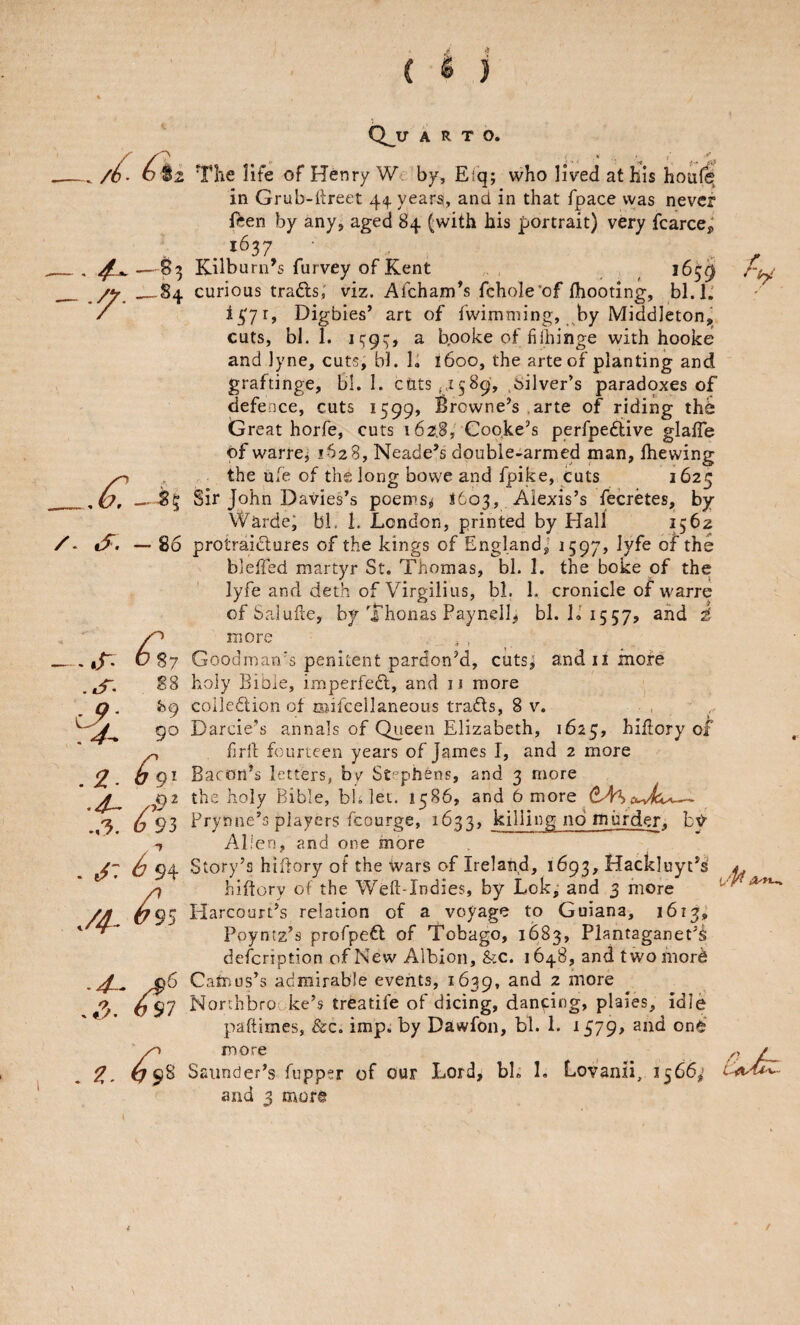 ( 6 )
QUARTO.
__ . 16. 682 The life of Henry W by, Esq; who lived at his houſe
in Grub-ſtreet 44 years, and in that ſpace was never
ſeen by any, aged 84 (with his portrait) very ſcarce,
1637
__ . 4. —83 Kilburn's ſurvey of Kent 1659
__ . 17. —84 curious tracts, viz. Aſcham's ſchole of ſhooting, bl. l.
1571, Digbies' art of ſwimming, by Middleton,
cuts, bl. l. 1595, a booke of fiſhinge with hooke
and lyne, cuts, bl. l. 1600, the arte of planting and
graftinge, bl. l. cuts, 1589, Silver's paradoxes of
defence, cuts 1599, Browne's arte of riding the
Great horſe, cuts 1628, Cooke's perſpective glaſſe
of warre, 1628, Neade's double-armed man, ſhewing
the uſe of the long bowe and ſpike, cuts 1625
__ . 6. —85 Sir John Davies's poems, 1603, Alexis's ſecretes, by
Warde, bl. l. London, printed by Hall 1562
1. 5. — 86 protraictures of the kings of England, 1597, lyfe of the
bleſſed martyr St. Thomas, bl. l. the boke of the
lyfe and deth of Virgilius, bl. l. cronicle of warre
of Saluſte, by Thonas Paynell, bl. l. 1557, and 2
more
__ . 5. 687 Goodman's penitent pardon'd, cuts, and 11 more
. 5. 88 holy Bible, imperfect, and 11 more
. 9. 89 collection of miſcellaneous tracts, 8 v.
4. 90 Darcie's annals of Queen Elizabeth, 1625, hiſtory of
firſt fourteen years of James I, and 2 more
. 2. 691 Bacon's letters, by Stephens, and 3 more
. 4. 92 the holy Bible, bl. let. 1586, and 6 more
. 3. 693 Prynne's players ſcourge, 1633, killing no murder, by
Allen, and one more
. 5. 694 Story's hiſtory of the wars of Ireland, 1693, Hackluyt's
hiſtory of the Weſt-Indies, by Lok, and 3 more
. 14. 695 Harcourt's relation of a voyage to Guiana, 1613,
Poyntz's proſpect of Tobago, 1683, Plantaganet's
deſcription of New Albion, &c. 1648, and two more
. 4. 96 Camus's admirable events, 1639, and 2 more
. 3. 697 Northbro ke's treatiſe of dicing, dancing, plaies, idle
paſtimes, &c. imp. by Dawſon, bl. l. 1579, and one
more
. 2. 698 Saunder's ſupper of our Lord, bl. l. Lovanii, 1566,
and 3 more